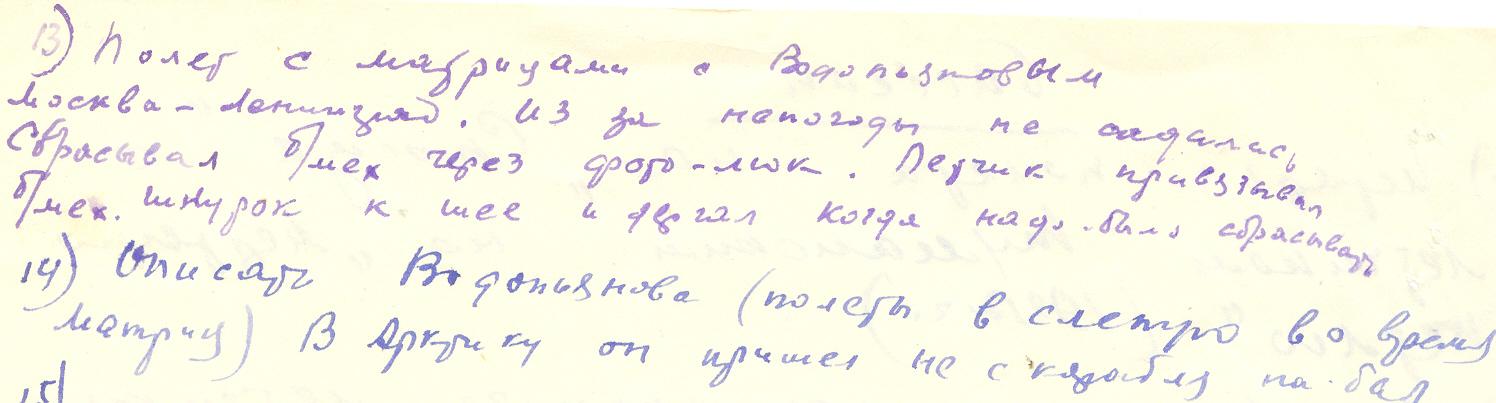 13) Полет с матрицами с Водопьяновым
Москва - Ленинград. Из за непогоды не садались
Сбрасывал б/мех через фото-люк. Летчик привязывал
б/мех. шнурок к шее и дергал когда надо было сбрасывать
14) Описать Водопьянова (полеты в во время
матриц) В Арктику он пришел не с корабля на бал
15)